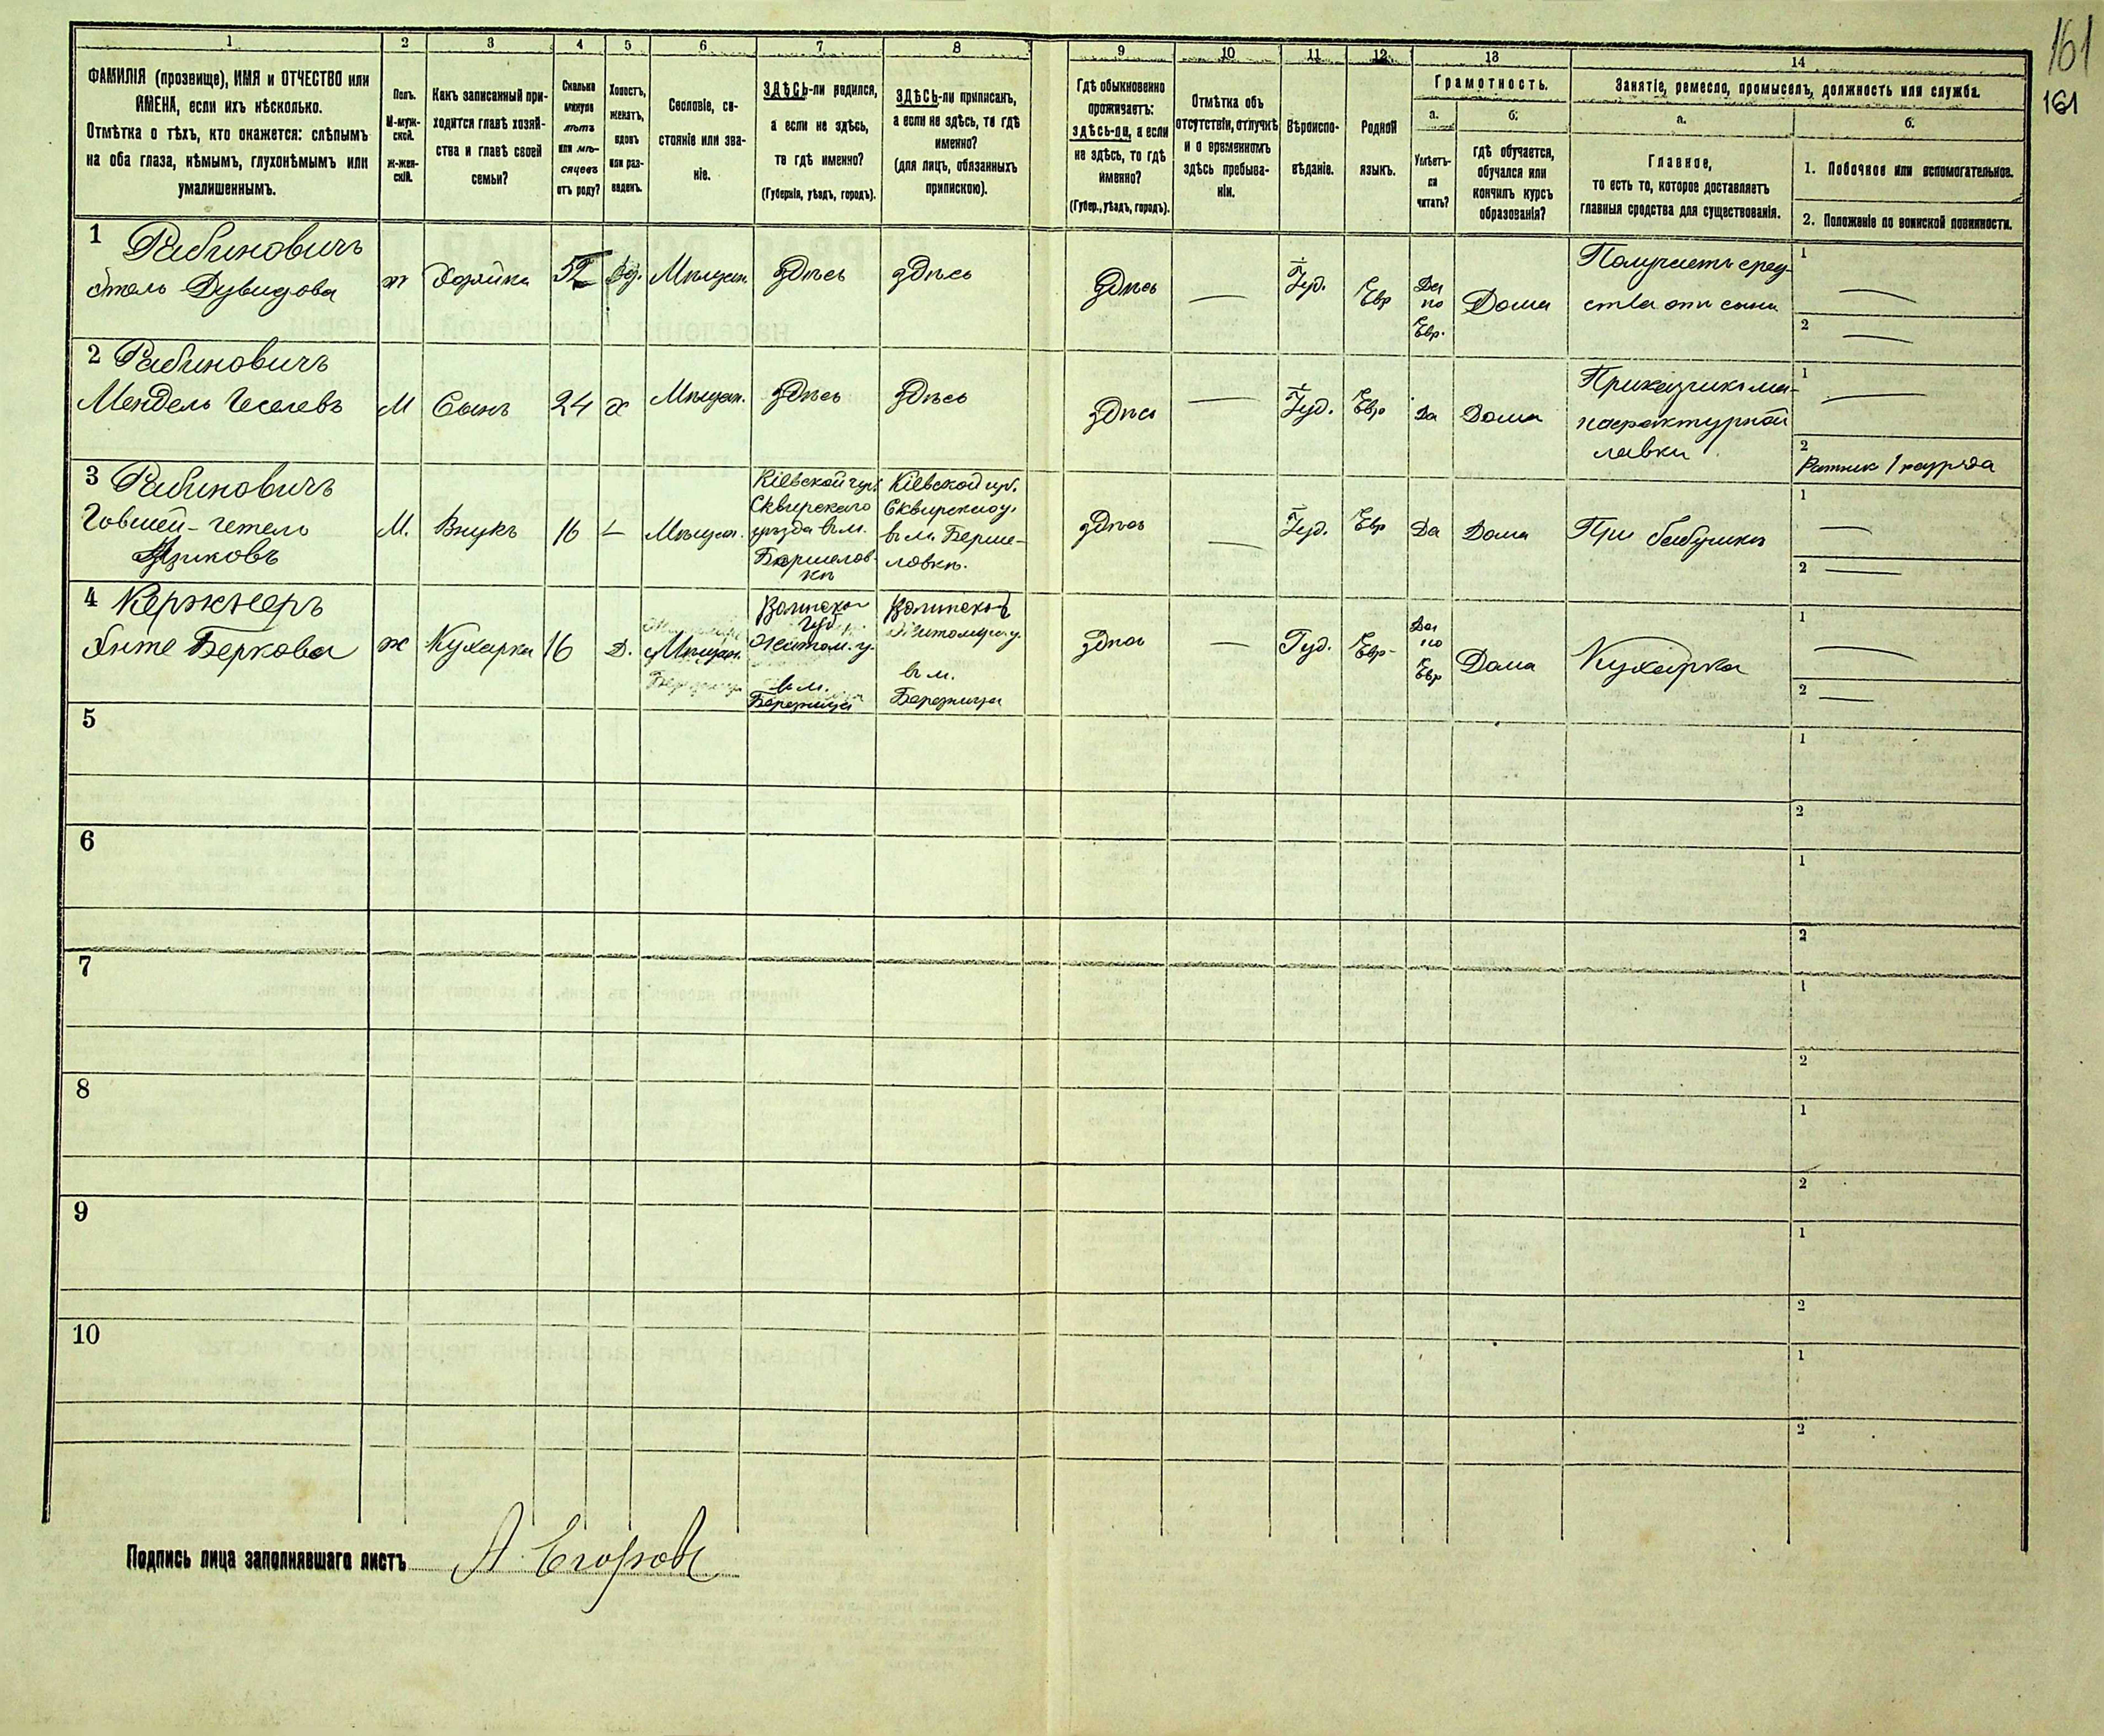 161
161
1
2
3
4
5
6
7
8
9
10
11
12
13
14
ФАМИЛІЯ (прозвище), ИМЯ и ОТЧЕСТВО или
ИМЕНА, если ихъ нѣсколько.
Отмѣтка о тѣхъ, кто окажется: слѣпымъ
на оба глаза, нѣмымъ, глухонѣмымъ или
умалишеннымъ.
Полъ.
М-муж-
ской.
Ж-жен-
скій.
Какъ записанный при-
ходится главѣ хозяй-
ства и главѣ своей
семьи?
Сколько
минуло
лѣтъ
или мѣ-
сяцевъ
отъ роду?
Холостъ,
женатъ,
вдовъ
или раз-
веденъ.
Сословіе, со-
стояніе или зва-
ніе.
ЗДѢСЬ-ли родился,
а если не здѣсь,
то гдѣ именно?
(Губернія, уѣздъ, городъ).
ЗДѢСЬ-ли приписанъ,
а если не здѣсь, то гдѣ
именно?
(для лицъ, обязанныхъ
припискою).
Гдѣ обыкновенно
проживаетъ:
здѣсь-ли, а если
не здѣсь, то гдѣ
именно?
(Губер., уѣздъ, городъ).
Отмѣтка объ
отсутствіи, отлучкѣ
и о временномъ
здѣсь пребыва-
ніи.
Вѣроиспо-
вѣданіе.
Родной
языкъ.
Грамотность.
а.
Умѣетъ-
ли
читать?
б.
гдѣ обучается,
обучался или
кончилъ курсъ
образованія?
Занятіе, ремесло, промыселъ, должность или служба.
а.
Главное,
то есть то, которое доставляетъ
главныя средства для существованія.
б.
1. Побочное или вспомогательное.
2. Положеніе по воинской повинности.
1 Рабиновичъ
Этель Дувидова
ж
Хозяйка
52
Вд.
Мѣщан.
здѣсь
здѣсь
здѣсь
—
Іуд.
Евр
Да
по
Евр.
Дома
Получаетъ сред-
ства отъ сына
1
—
2
—
2 Рабиновичъ
Мендель
М
Сынъ
24
х
Мѣщан.
здѣсь
здѣсь
здѣсь
—
Іуд.
Евр
Да
Дома
Приказчикъ ма-
нафактурной
лавки
1
—
2
Ратник 1 разряда
3 Рабиновичъ
М.
Внукъ
16
Мѣщан.
Кіевской губ.
Сквирскаго
уѣзда въ м.
Кіевской губ.
Сквирского у.
въ м.
здѣсь
—
Іуд.
Евр
Да
Дома
При бабушкѣ
1
—
2
—
4 Кержнеръ
Беркова
ж
Кухарка
16
Д.
Мѣщан.
Волынской
губ.
Житом. у.
в м.
Волынской
Житомир. у.
в м.
здѣсь
—
Іуд.
Евр-
Да
по
Евр
Дома
Кухарка
1
—
2
—
5
1
2
6
1
2
7
1
2
8
1
2
9
1
2
10
1
2
Подпись лица заполнявшаго листъ А. Егоровъ